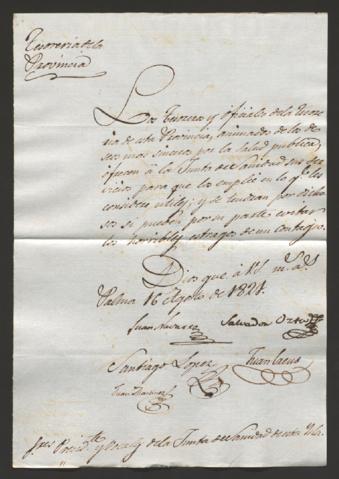 Tesoreria de la
Provincia
Los Tesorero y oficiales de la Tesore
ria de esta Provincia, animados de los de
seos mas sinceros por la salud publica,
ofrecen à la Junta de Sanidad sus ser
vicios para que los emplee en lo qe. los
considere utiles; y se tendran por dicho
sos si pueden por su parte evitar
los horribles estragos de un contagio.
Dios gue. à V.S. m. a.s
Palma 16 Agosto de 1821.
Juan Salvador
Santiago Lopez Juan
Juan Martinez
Sres. Presid.te y Vocales de la Junta de Sanidad de esta Isla.